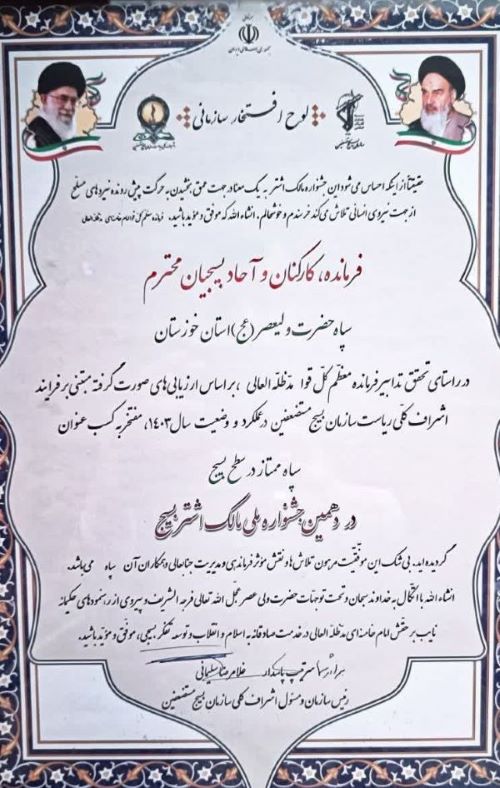 جمهوری اسلامی ایران
لوح افتخار سازمانی
حقیقتاً از اینکه احساس می شود این جشنواره مالک اشتر به یک معنا در جهت عمق بخشیدن به حرکت پیش رونده نیروهای مسلح
از جهت نیروی انسانی تلاش می کند خرسندم و خوشحالم. انشاءالله که موفق و مؤید باشید.
فرمانده، کارکنان و آحاد بسیجیان محترم
سپاه حضرت ولیعصر (عج) استان خوزستان
در راستای تحقق تدابیر فرمانده معظّم کلّ قوا مدظلّه العالی ، بر اساس ارزیابی های صورت گرفته مبتنی بر فرایند
اشراف کلّی ریاست سازمان بسیج مستضعفین در عملکرد و وضعیت سال ۱۴۰۳، مفتخر به کسب عنوان
سپاه ممتاز در سطح بسیج
در دهمین جشنواره ملی مالک اشتر بسیج
گردیده اید. بی شک این موفقیّت مرهون تلاش ها و نقش مؤثر فرماندهی و مدیریت جنابعالی و همکاران آن سپاه می باشد.
انشاءالله با اتّکال به خداوند سبحان و تحت توجهات حضرت ولی عصر عجّل الله تعالی فرجه الشریف و پیروی از رهنمودهای حکیمانه
نایب بر حقّش امام خامنه ای مدظلّه العالی در خدمت صادقانه به اسلام و انقلاب و توسعه تفکّر بسیجی، موفق و مؤید باشید.
سرتیپ پاسدار غلامرضا سلیمانی
رئیس سازمان و مسئول اشراف کلی سازمان بسیج مستضعفین